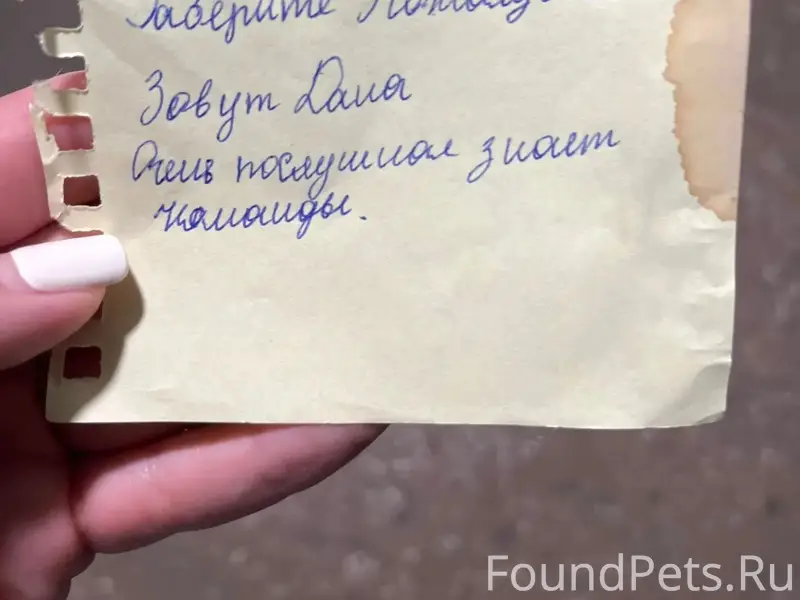 Заберите Пожалу
Зовут Дана
Очень послушная знает
команды.
FoundPets.Ru